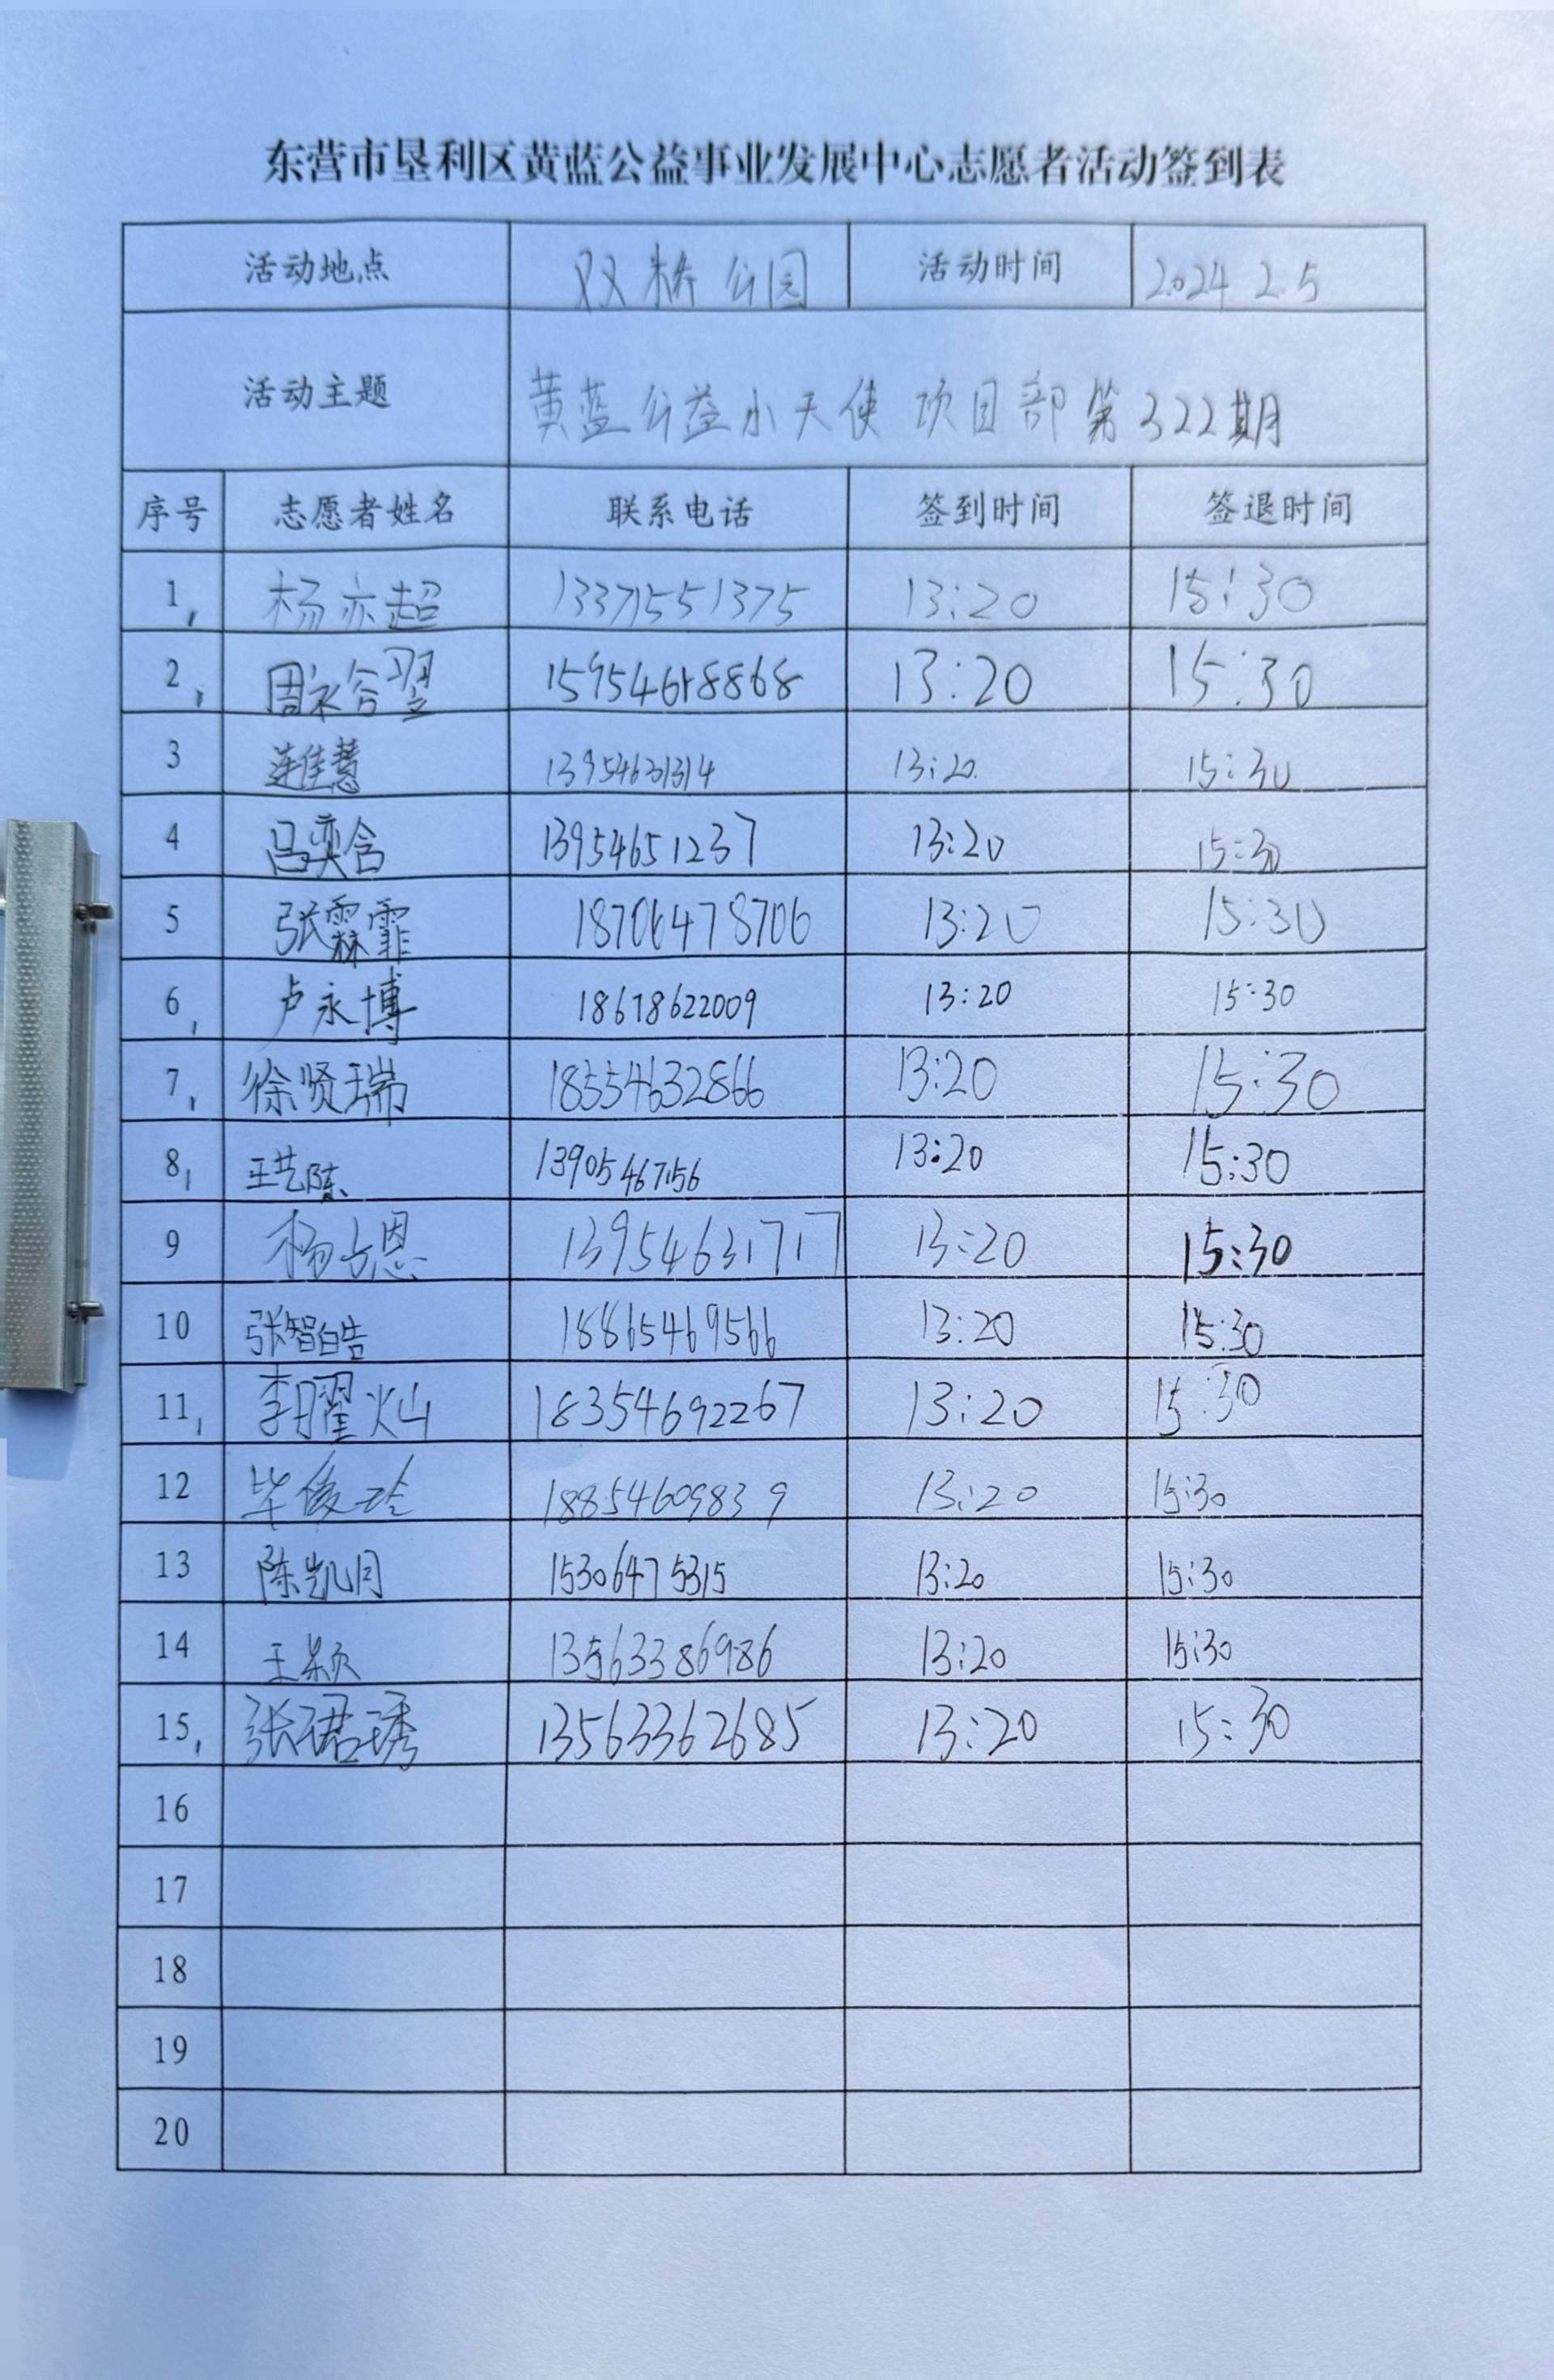 东营市垦利区黄蓝公益事业发展中心志愿者活动签到表
活动地点 双桥公园 活动时间 2024.2.5
活动主题 黄蓝公益小天使 项目部第322期
序号 志愿者姓名 联系电话 签到时间 签退时间
1, 杨亦超 13371551375 13:20 15:30
2, 周永合翌 15954618868 13:20 15:30
3 连佳慧 13954631314 13:20. 15:30
4 吕奕含 13954651237 13:20 15:30
5 张霖霏 18706478706 13:20 15:30
6, 卢永博 18678622009 13:20 15:30
7, 徐贤瑞 18554632866 13:20 15:30
8, 王艺陈 13:20 15:30
9 13954631717 13:20 15:30
10 张智皓 18865469566 13:20 15:30
11, 李曜灿 18354692267 13:20 15:30
12 毕俊玲 18854609839 13:20 15:30
13 陈凯月 15306475315 13:20 15:30
14 王颖 13563386986 13:20 15:30
15, 张珺琇 13563362685 13:20 15:30
16
17
18
19
20